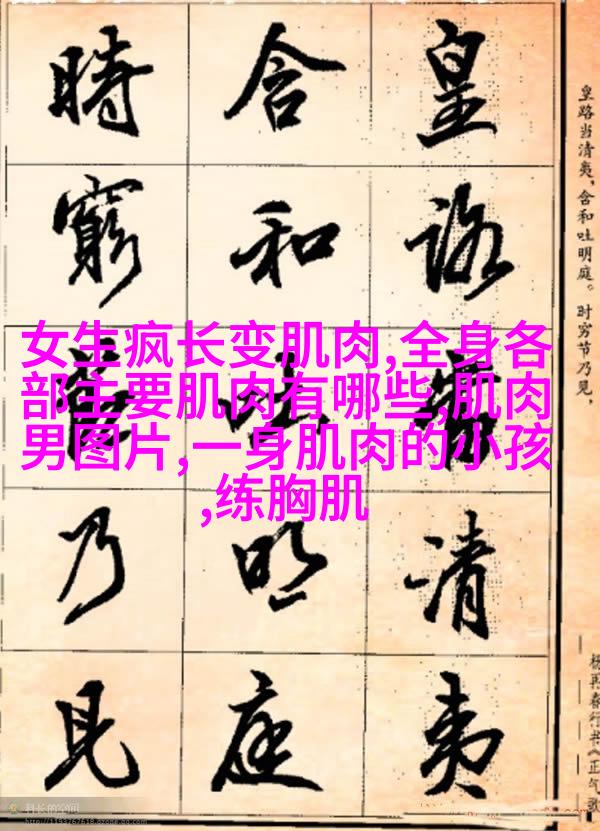 皇路当清夷,含和吐明庭。时穷节乃见,
杨再春行书《正气歌
皇路當清夷
含和吐明庭
時窮節乃見
女生疯长变肌肉,全身各
部主要肌肉有哪些,肌肉
男图片,一身肌肉的小孩
,练胸肌
科长的空间